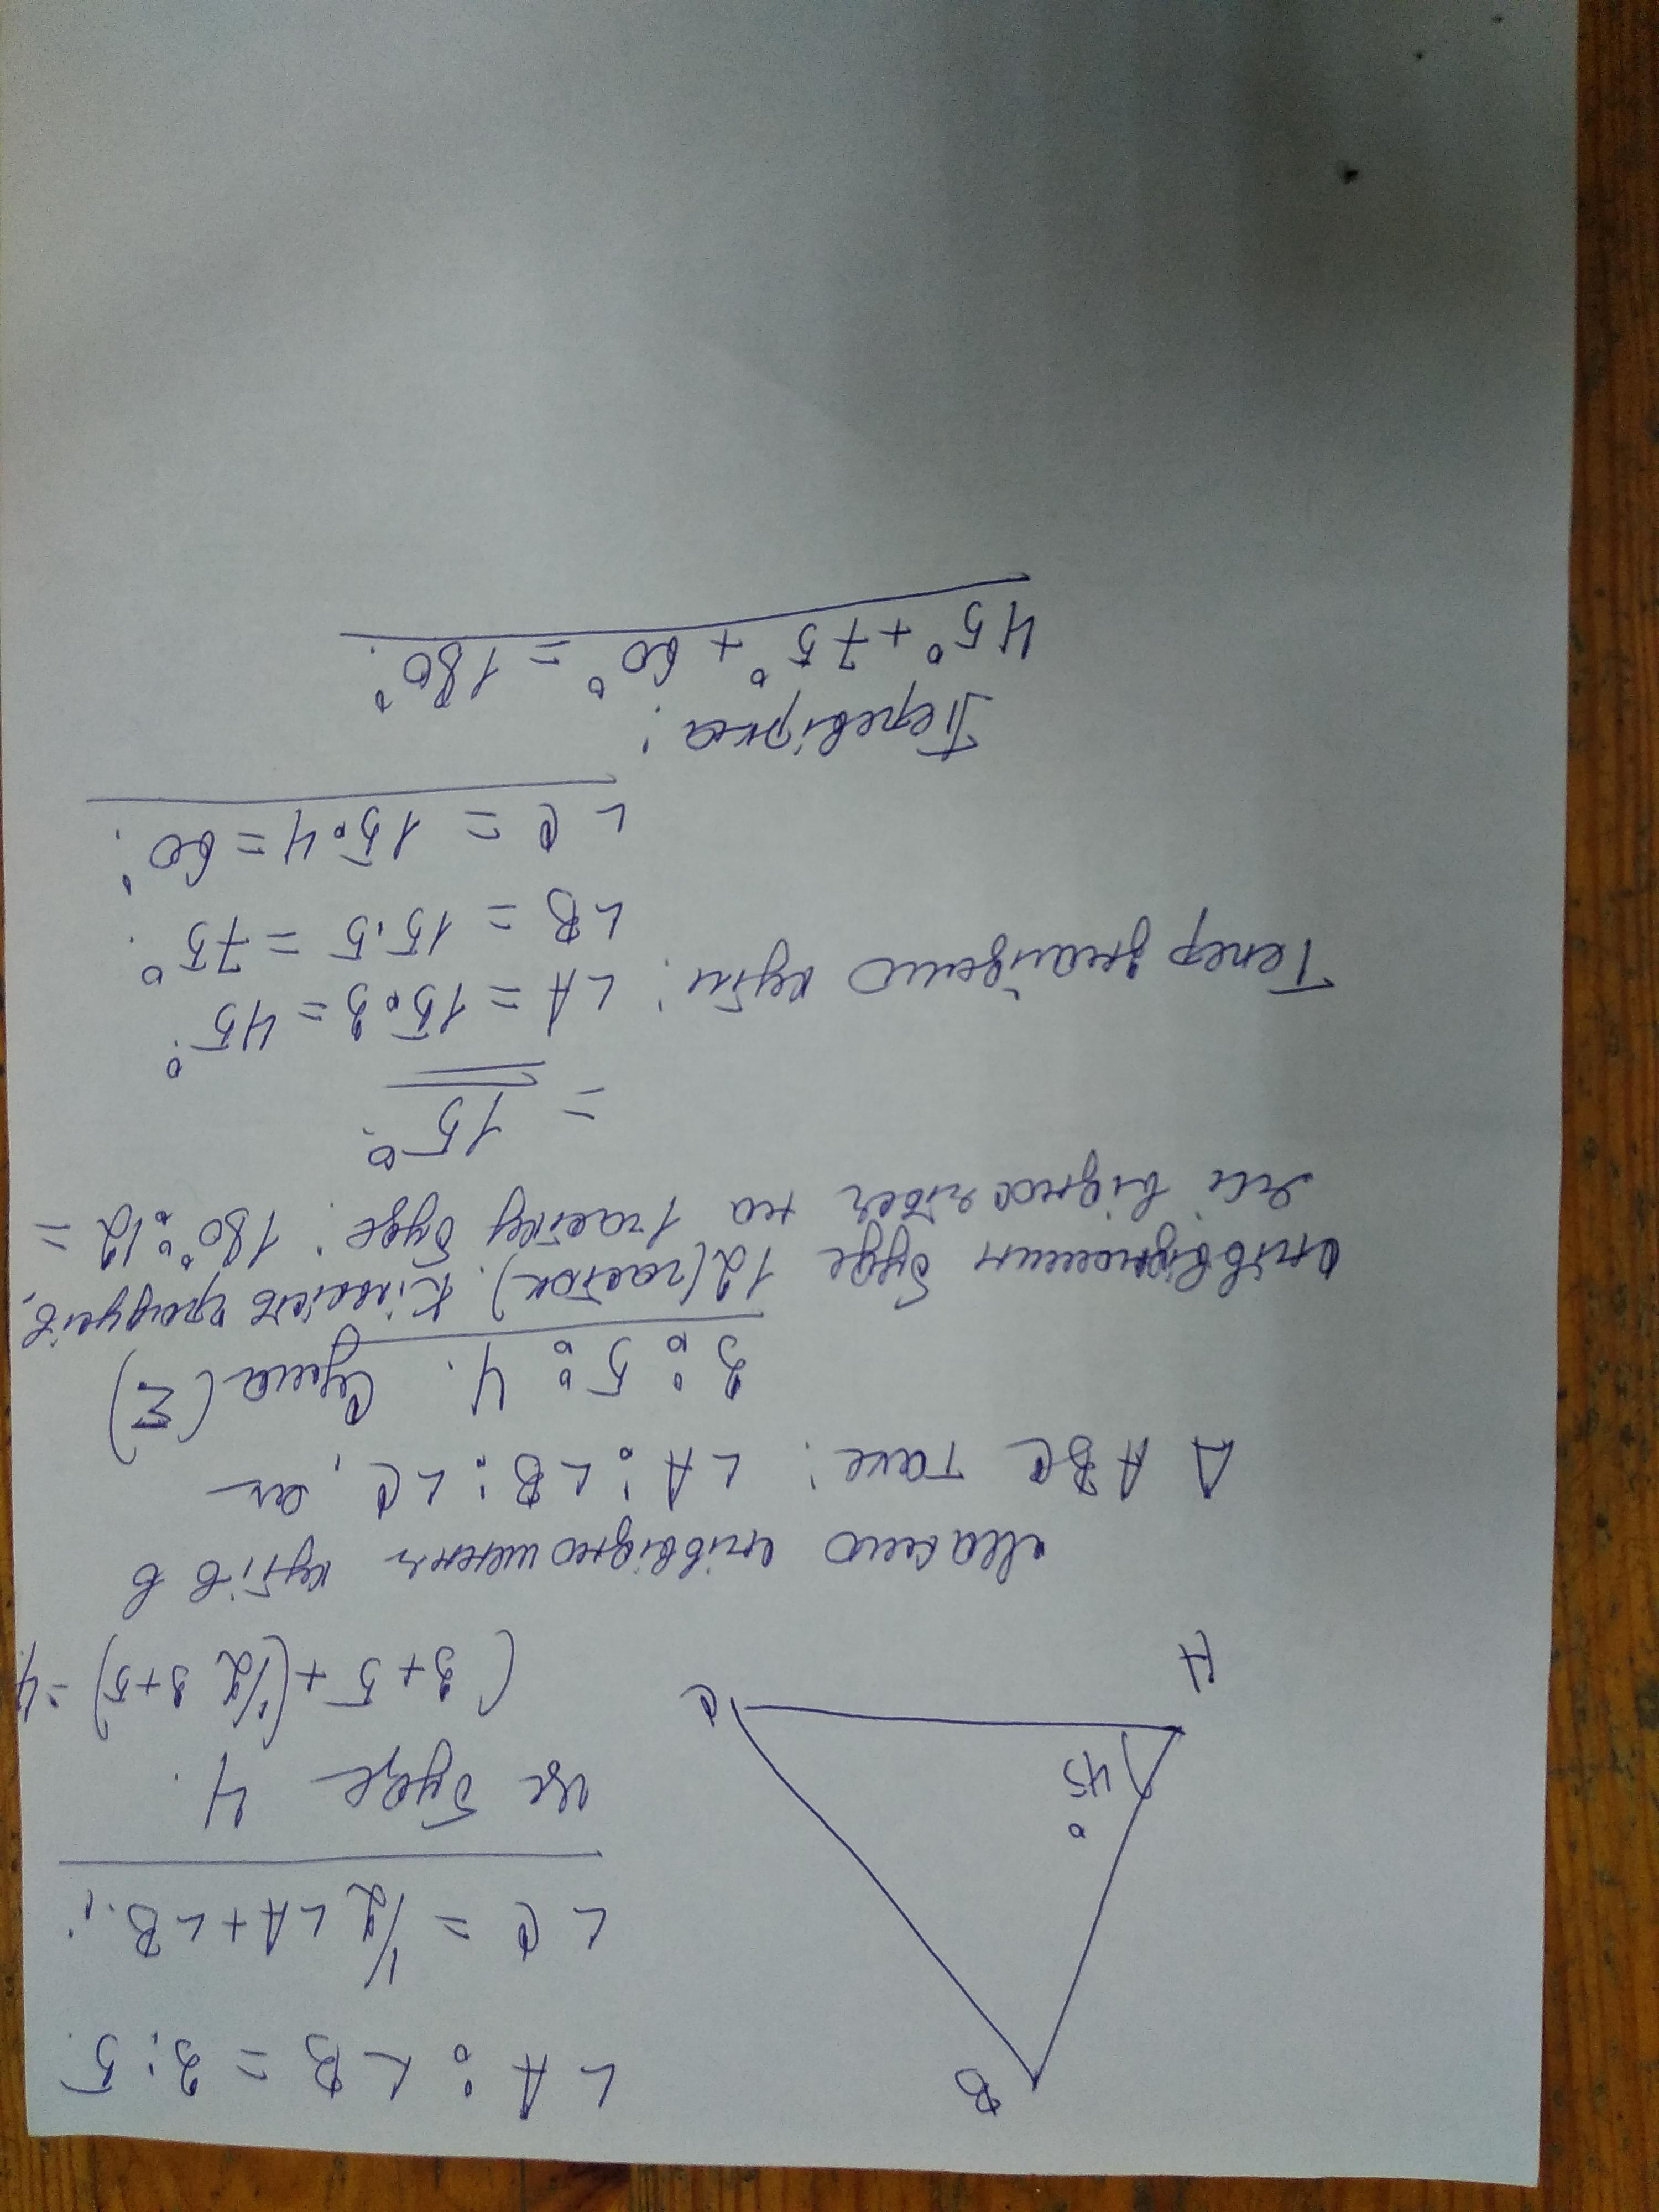 B
∠A : ∠B = 3 : 5.
∠C = 1/2 ∠A + ∠B.;
45°
це буде 4.
A
C
(3+5 + (1/2 3+5) = 4.
маємо співвідношення кутів в
Δ ABC таке: ∠A : ∠B : ∠C, а
3 : 5 : 4. Сума (Σ)
співвідношень буде 12 (часток). Кількість градусів,
що відноситься на 1 частку буде: 180° : 12 =
= 15°.
Тепер знайдемо кути: ∠A = 15·3 = 45°.
∠B = 15·5 = 75°.
∠C = 15·4 = 60°.
Перевірка:
45° + 75° + 60° = 180°.